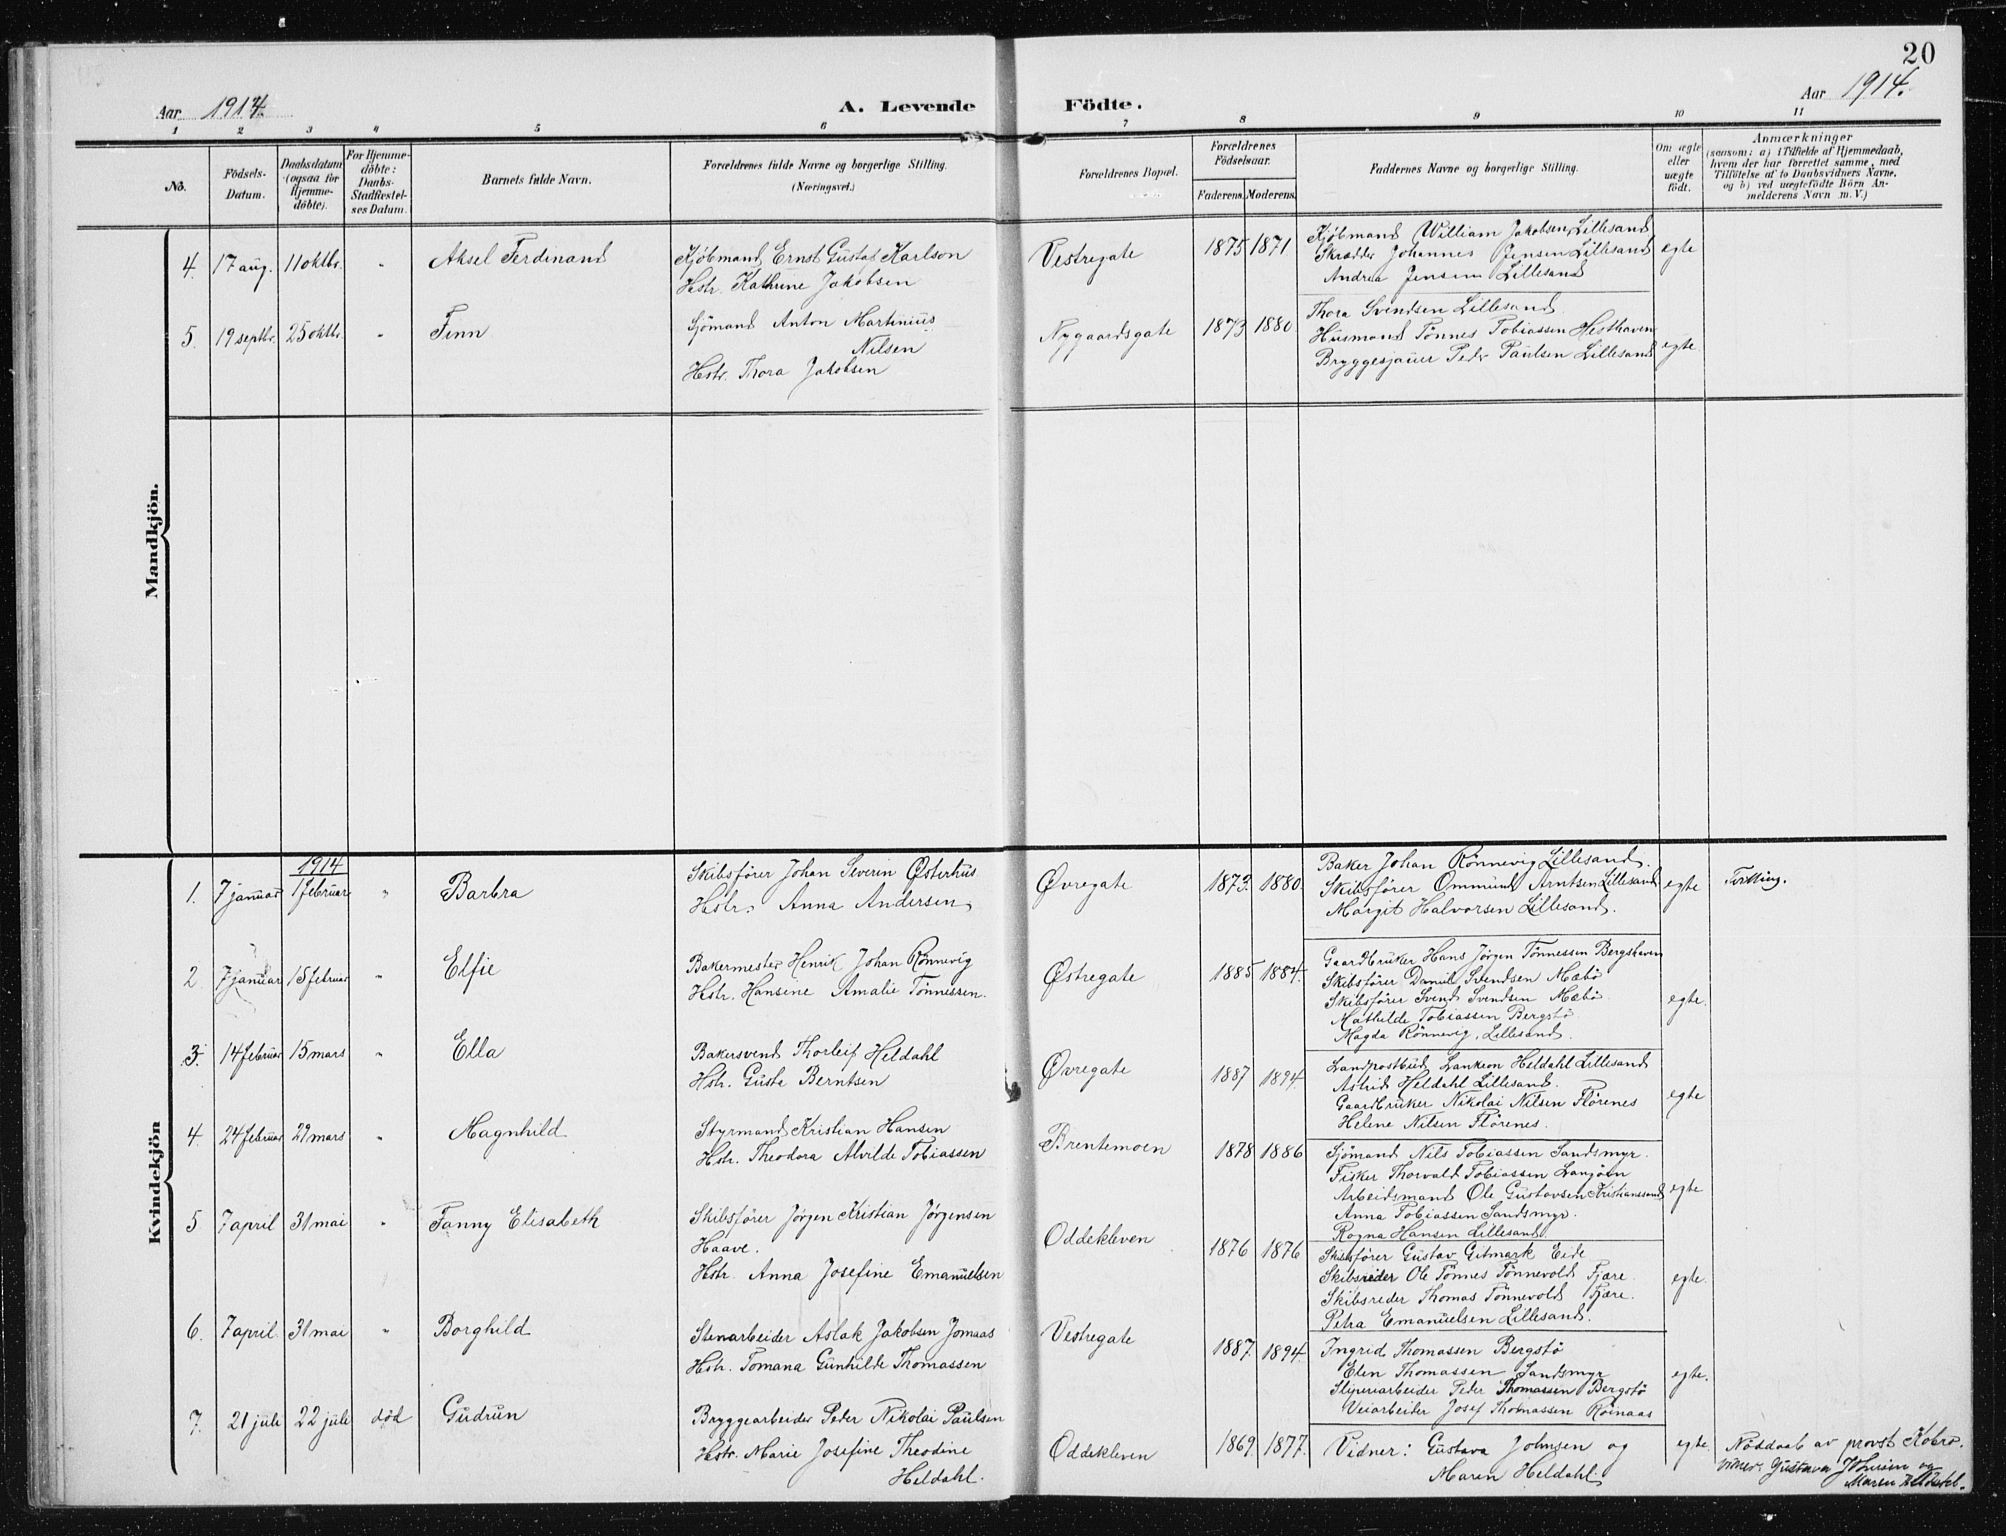 20
Aar 1914. A. Levende Födte. Aar 1914.
1 2 3 4 5 6 7 8 9 10 11
No.
Födsels-
Datum.
Daabsdatum
(ogsaa for
Hjemme-
döbte).
For Hjemme-
döbte:
Daabs-
Stadfæstel-
ses Datum.
Barnets fulde Navn.
Forældrenes fulde Navne og borgerlige Stilling.
(Næringsvei.)
Forældrenes Bopæl.
Forældrenes
Födselsaar.
Faderens. Moderens.
Faddernes Navne og borgerlige Stilling.
Om ægte
eller
uægte
födt.
Anmærkninger
(saasom: a) i Tilfælde af Hjemmedaab,
hvem der har forrettet samme, med
Tilföielse af to Daabsvidners Navne.
og b) ved uægtefödte Börn An-
melderens Navn m. V.)
Mandkjön.
4. 17 aug. 11 oktbr. " Aksel Ferdinand
Kjøbmand Ernst Gustav Karlson
Hstr. Kathrine Jakobsen
Vestregate 1875 1871
Kjøbmand William Jakobsen, Lillesand
Skrædder Johannes Jensen Lillesand
Andrea Jensen Lillesand
egte
5. 19 septbr. 25 oktbr. " Finn
Sjömand Anton Martinius
Nilsen
Hstr. Thora Jakobsen
Nygaardsgate 1873 1880
Thora Svendsen Lillesand.
Husmand Tönnes Tobiassen Hesthaven
Bryggesjauer Peder Paulsen Lillesand
egte
Kvindekjön
1914
1. 7 januar 1 februar " Barbra
Skibsfører Johan Severin Østerhus
Hstr. Anna Andersen
Øvregate 1873. 1880.
Baker Johan Rönnevig Lillesand.
Skibsfører Ommund Arntsen Lillesand
Margit Halvorsen Lillesand.
egte Tvilling.
2 7 januar 15 februar " Elfie
Bakermester Henrik Johan Rönnevig
Hstr. Hansine Amalie Tönnessen.
Østregate 1885 1884.
Gaardbruker Hans Jörgen Tönnessen Bergshaven
Skibsfører Daniel Svendsen Mæbö
Skibsfører Svend Svendsen Mæbö.
Mathilde Tobiassen Bergstö
Magda Rönnevig, Lillesand.
egte.
3. 14 februar 15 mars " Ella
Bakersvend Thorleif Heldahl
Hstr. Gusta Berntsen
Øvregate 1887 1894
Landpostbud Heldahl Lillesand
Astrid Heldahl Lillesand.
Gaardbruker Nikolai Nilsen Flörenes
Helene Nilsen Flörenes.
egte
4. 24 februar 29 mars " Magnhild
Styrmand Kristian Hansen
Hstr. Theodora Alvilde Tobiassen
Brentemoen 1878 1886
Sjömand Nils Tobiassen Sandsmyr.
Fisker Thorvald Tobiassen
Arbeidsmand Ole Gustavsen Kristianssand
Anna Tobiassen Sandsmyr.
Rogna Hansen Lillesand.
egte
5 7 april 31 mai " Fanny Elisabeth
Skibsfører Jørgen Kristian Jørgensen
Haave.
Hstr. Anna Josefine Emanuelsen
Oddekleven 1876 1876
Skibsfører Gustav Gitmark Eide
Skibsreder Ole Tönnes Tönnevold Fjære.
Skibsreder Thomas Tönnevold Fjære.
Petra Emanuelsen Lillesand.
egte.
6. 7 april. 31 mai " Borghild
Stenarbeider Aslak Jakobsen Jomaas
Hstr. Tomana Gunhilde Thomassen
Vestregate 1887. 1894.
Ingrid Thomassen Bergstö
Elen Thomassen Sandsmyr
Sliperiarbeider Peder Thomassen Bergstö
Veiarbeider Josef Thomassen Röinaas
egte.
7. 21 juli 22 juli död Gudrun
Bryggearbeider Peder Nikolai Paulsen
Hstr. Marie Josefine Theodine
Heldahl.
Oddekleven 1869 1877.
Vidner: Gustava Johnsen og
Maren Heldahl.
egte.
Nöddaab av provst Kobro.
Vidner: Gustava Johnsen og
Maren Heldahl.